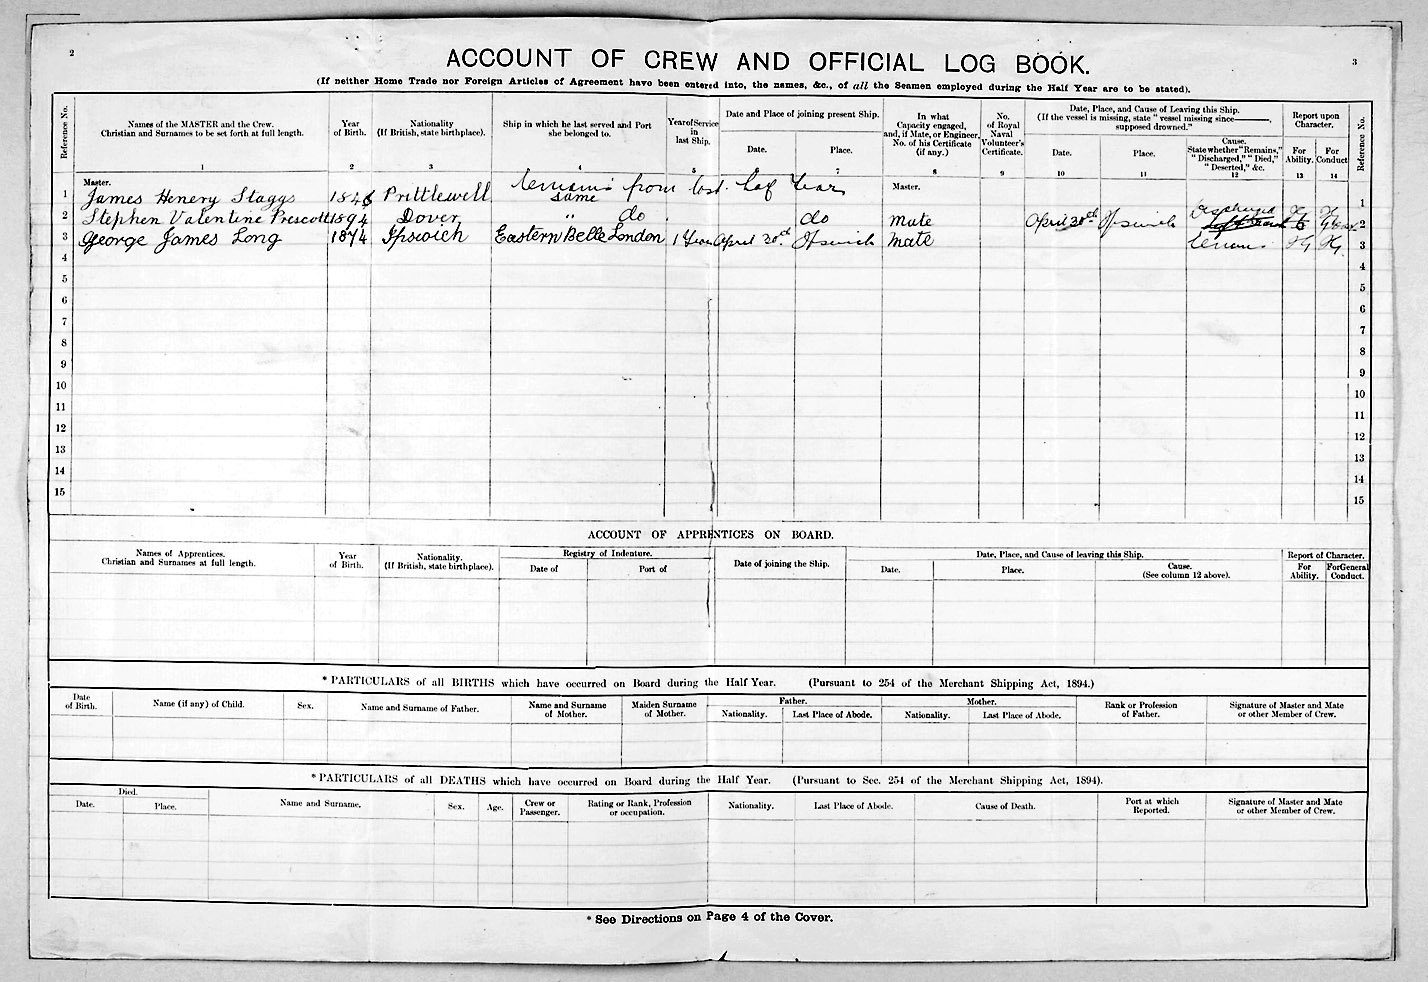 2
3
ACCOUNT OF CREW AND OFFICIAL LOG BOOK.
(If neither Home Trade nor Foreign Articles of Agreement have been entered into, the names, &c., of all the Seamen employed during the Half Year are to be stated).
Reference No.
Names of the MASTER and the Crew.
Christian and Surnames to be set forth at full length.
1
Year
of Birth.
2
Nationality
(If British, state birthplace).
3
Ship in which he last served and Port
she belonged to.
4
Year of Service
in
last Ship.
5
Date and Place of joining present Ship.
Date.
6
Place.
7
In what
Capacity engaged,
and, if Mate, or Engineer,
No. of his Certificate
(if any.)
8
No.
of Royal
Naval
Volunteer's
Certificate.
9
Date, Place, and Cause of Leaving this Ship.
(If the vessel is missing, state "vessel missing since———,
supposed drowned."
Date.
10
Place.
11
Cause.
State whether "Remains,"
"Discharged," "Died,"
"Deserted," &c.
12
Report upon
Character.
For
Ability.
13
For
Conduct
14
Reference No.
Master.
1 James Henery Staggs Prittlewell same remains from last haf Year Master. 1
2 Stephen Valentine Prescott 1894 Dover " do do mate April 30th Ipswich 2
3 George James Long 1874 Ipswich Eastern Belle London 1 Year April 30 Ipswich mate 3
4 4
5 5
6 6
7 7
8 8
9 9
10 10
11 11
12 12
13 13
14 14
15 15
ACCOUNT OF APPRENTICES ON BOARD.
Names of Apprentices.
Christian and Surnames at full length.
Year
of Birth.
Nationality.
(If British, state birthplace).
Registry of Indenture.
Date of
Port of
Date of joining the Ship.
Date, Place, and Cause of leaving this Ship.
Date.
Place.
Cause.
(See column 12 above).
Report of Character.
For
Ability.
For General
Conduct.
* PARTICULARS of all BIRTHS which have occurred on Board during the Half Year. (Pursuant to 254 of the Merchant Shipping Act, 1894.)
Date
of Birth.
Name (if any) of Child.
Sex.
Name and Surname of Father.
Name and Surname
of Mother.
Maiden Surname
of Mother.
Father.
Nationality.
Last Place of Abode.
Mother.
Nationality.
Last Place of Abode.
Rank or Profession
of Father.
Signature of Master and Mate
or other Member of Crew.
* PARTICULARS of all DEATHS which have occurred on Board during the Half Year. (Pursuant to Sec. 254 of the Merchant Shipping Act, 1894).
Died.
Date.
Place.
Name and Surname.
Sex.
Age.
Crew or
Passenger.
Rating or Rank, Profession
or occupation.
Nationality.
Last Place of Abode.
Cause of Death.
Port at which
Reported.
Signature of Master and Mate
or other Member of Crew.
* See Directions on Page 4 of the Cover.